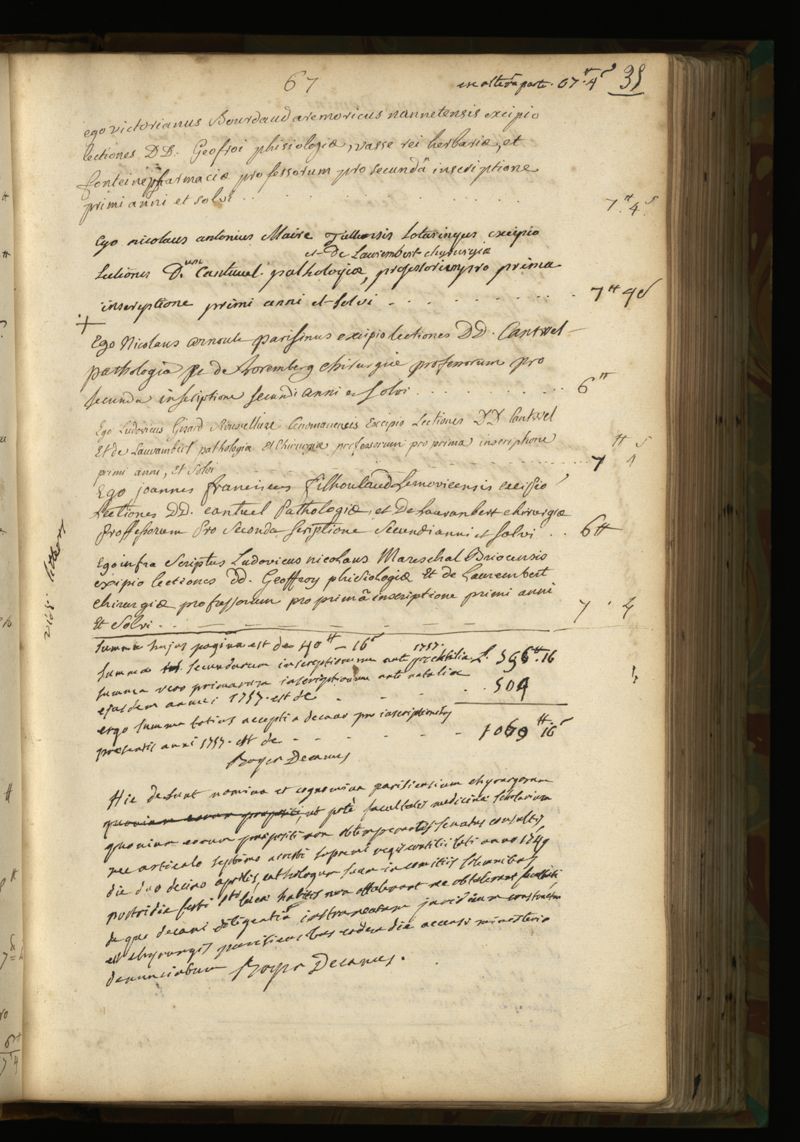 67
ex altera parte. 67 ₶. 4 ˢ
35
ego victorianus Bourdaud aremoricus nannetensis excipio
lectiones DD. Geofroi phisiologiæ, vasse rei herbariæ, et
fonteine pharmaciæ professorum pro secundâ inscriptione
primi anni et solvi . . . . . . . . . . 7 ₶. 4 ˢ.
Ego nicolaus antonius Maire Tullensis Lotaringus excipio
et de Laurembert chyrurgiæ
Lectiones D.um Cantwel. pathologiæ, professorum pro prima
inscriptione primi anni et solvi . . . . . . . 7 ₶ 4 ˢ
+
Ego Nicolaus arnoult parisinus excipio lectiones DD. Cantwel
pathologia et de Loremberg chirurgiæ professorum pro
secunda inscriptione secundi anni et solvi . . . . . . . 6 ₶
Ego Ludovicus Girard Cenomanensis Excipio Lectiones DD Cantwel
Et de Laurambert pathologia et Chirurgia professorum pro prima inscriptione
primi anni, et Solvi . . . . . . 7 ₶ 4 ˢ
Ego joannes franciscus filhoulaud Lemovicensis excipio
Lectiones DD. cantuel Pathologiæ, et De Lauranbert chirurgiæ
Professorum Pro Seconda scriptione Secundi anni et salvi . . 6 ₶
Ego infra Scriptus Ludovicus nicolaus Mareschal Briocensis
exipio lectiones dd. Geoffroy phisiologiæ Et de Laurembert
chirurgiæ professorum pro primâ inscriptione primi anni
Et Solvi . . . . . . 7 . 4
Summa hujus pagina est de 40 ₶ - 16 ˢ
1757.
Summa secundarum inscriptionum ante 565 ₶. 16
summa vero primarum inscriptionum ante natalia
ejusdem anni 1757. est de . . . . . 504
ergo summa totius accepti a decano pro inscriptionibus
præsentis anni 1757. est de . . . . . 1069 ₶ 16 ˢ
Boyer Decanus
Hic desunt nomina et cognomina parisiensium chyrurgorum
quoniam eorum præpositi ut pote facultatis medicinæ scholarium
quoniam eorum præpositi non obtemperantes senatus consultis
nec articulo septimo aresti supremi regii consilii lati anno 1749
die duodecimo aprilis, cathologum suum in comitiis solemnibus
postridie festi sti lucæ habitis non attulerunt nec obtulerunt facultati
de quo decani diligentiâ instrumentum juridicum constructum
est chyrurgis parisiensibus eadem die accensi ministerio
denunciatum Boyer Decanus.